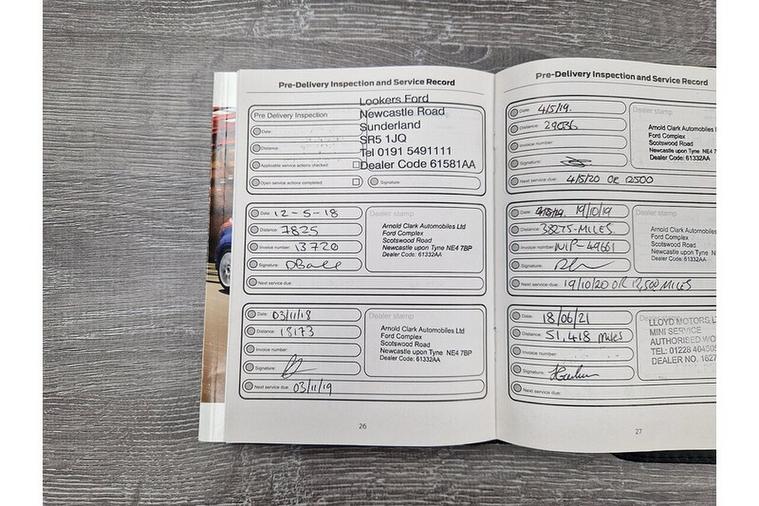 Pre-Delivery Inspection and Service Record
Pre Delivery Inspection
Lookers Ford
Newcastle Road
Sunderland
SR5 1JQ
Tel 0191 5491111
Dealer Code 61581AA
Date:
Distance:
Applicable service actions checked
Open service actions completed
Signature:
Date: 12-5-18
Distance: 7825
Invoice number: 13720
Signature:
Next service due:
Dealer stamp
Arnold Clark Automobiles Ltd
Ford Complex
Scotswood Road
Newcastle upon Tyne NE4 7BP
Dealer Code: 61332AA
Date: 03/11/18
Distance:
Invoice number:
Signature:
Next service due: 03/11/19
Dealer stamp
Arnold Clark Automobiles Ltd
Ford Complex
Scotswood Road
Newcastle upon Tyne NE4 7BP
Dealer Code: 61332AA
26
Pre-Delivery Inspection and Service Record
Date: 4/5/19.
Distance: 29036
Invoice number:
Signature:
Next service due: 4/5/20 OR 12500
Dealer stamp
Arnold Clark Automobiles
Ford Complex
Scotswood Road
Newcastle upon Tyne NE4 7
Dealer Code: 61332AA
Date: 19/10/19
Distance: 38275-MILES
Invoice number: WIP-49661
Signature:
Next service due: 19/10/20 OR 12,500 MILES
Dealer stamp
Arnold Clark Automobiles
Ford Complex
Scotswood Road
Newcastle upon Tyne NE4
Dealer Code: 61332AA
Date: 18/06/21
Distance: 51,418 miles
Invoice number:
Signature:
Next service due:
Dealer stamp
LLOYD MOTORS L
MINI SERVICE
AUTHORISED WO
TEL: 01228 40450
DEALER NO. 1627
27